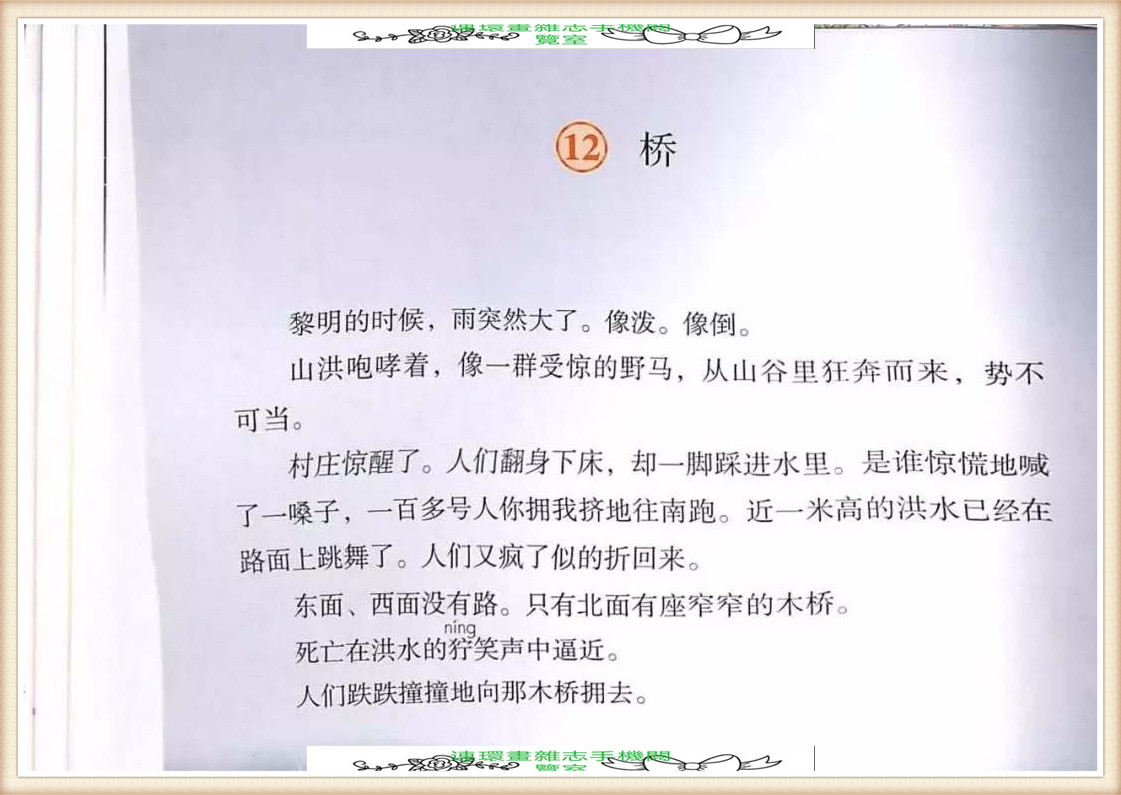 連環畫雜志手機閱
覽室
12 桥
黎明的时候，雨突然大了。像泼。像倒。
山洪咆哮着，像一群受惊的野马，从山谷里狂奔而来，势不
可当。
村庄惊醒了。人们翻身下床，却一脚踩进水里。是谁惊慌地喊
了一嗓子，一百多号人你拥我挤地往南跑。近一米高的洪水已经在
路面上跳舞了。人们又疯了似的折回来。
东面、西面没有路。只有北面有座窄窄的木桥。
níng
死亡在洪水的狞笑声中逼近。
人们跌跌撞撞地向那木桥拥去。
連環畫雜志手機閱
覽室